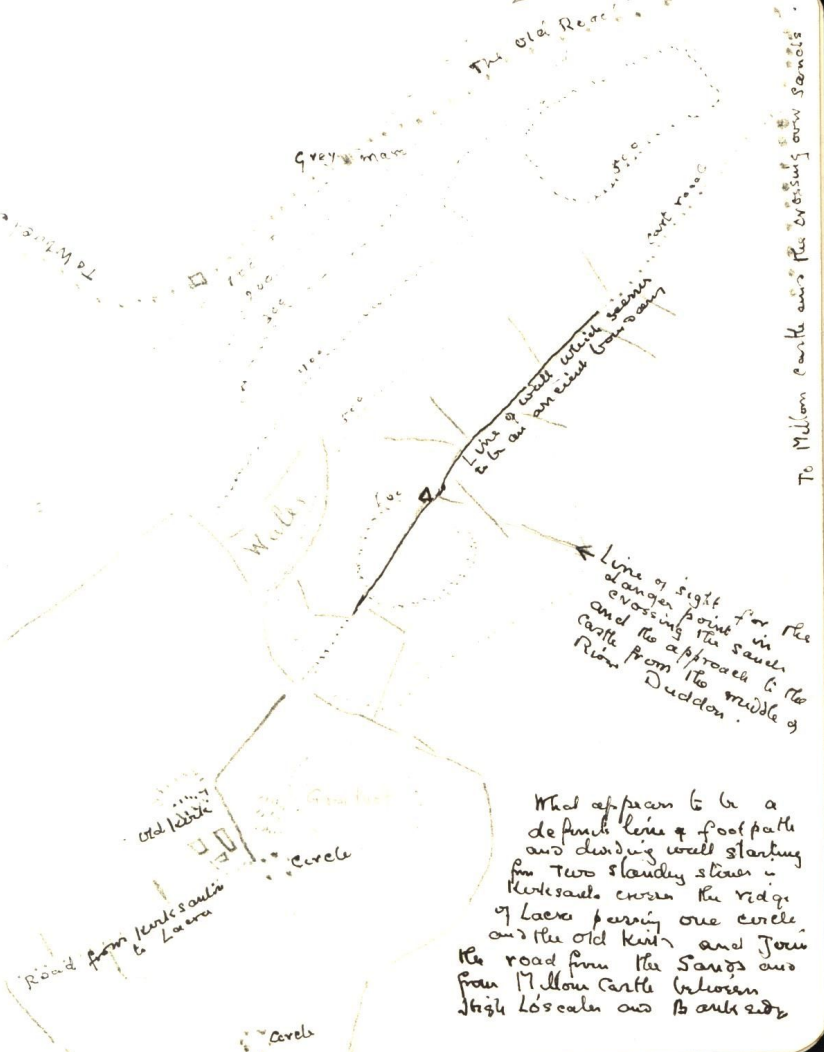 The Old Road
Grey mare
400
Cart road
To Millom Castle and the crossing over Sands
700
900
1100
Line of wall which seems
to be an ancient boundary
Line of sight for the
danger point in
crossing the sands
and the approach to the
Castle from the middle of
River Duddon.
Old Kirk
Circle
Road from Kirksanton
to Lacra
Circle
What appears to be a
definite line of footpath
and dividing wall starting
from Two Standing stones in
Kirksanton crosses the ridge
of Lacra passing one circle
and the old Kirk and Joins
the road from the Sands and
from Millom Castle between
High Loscales and Bankside